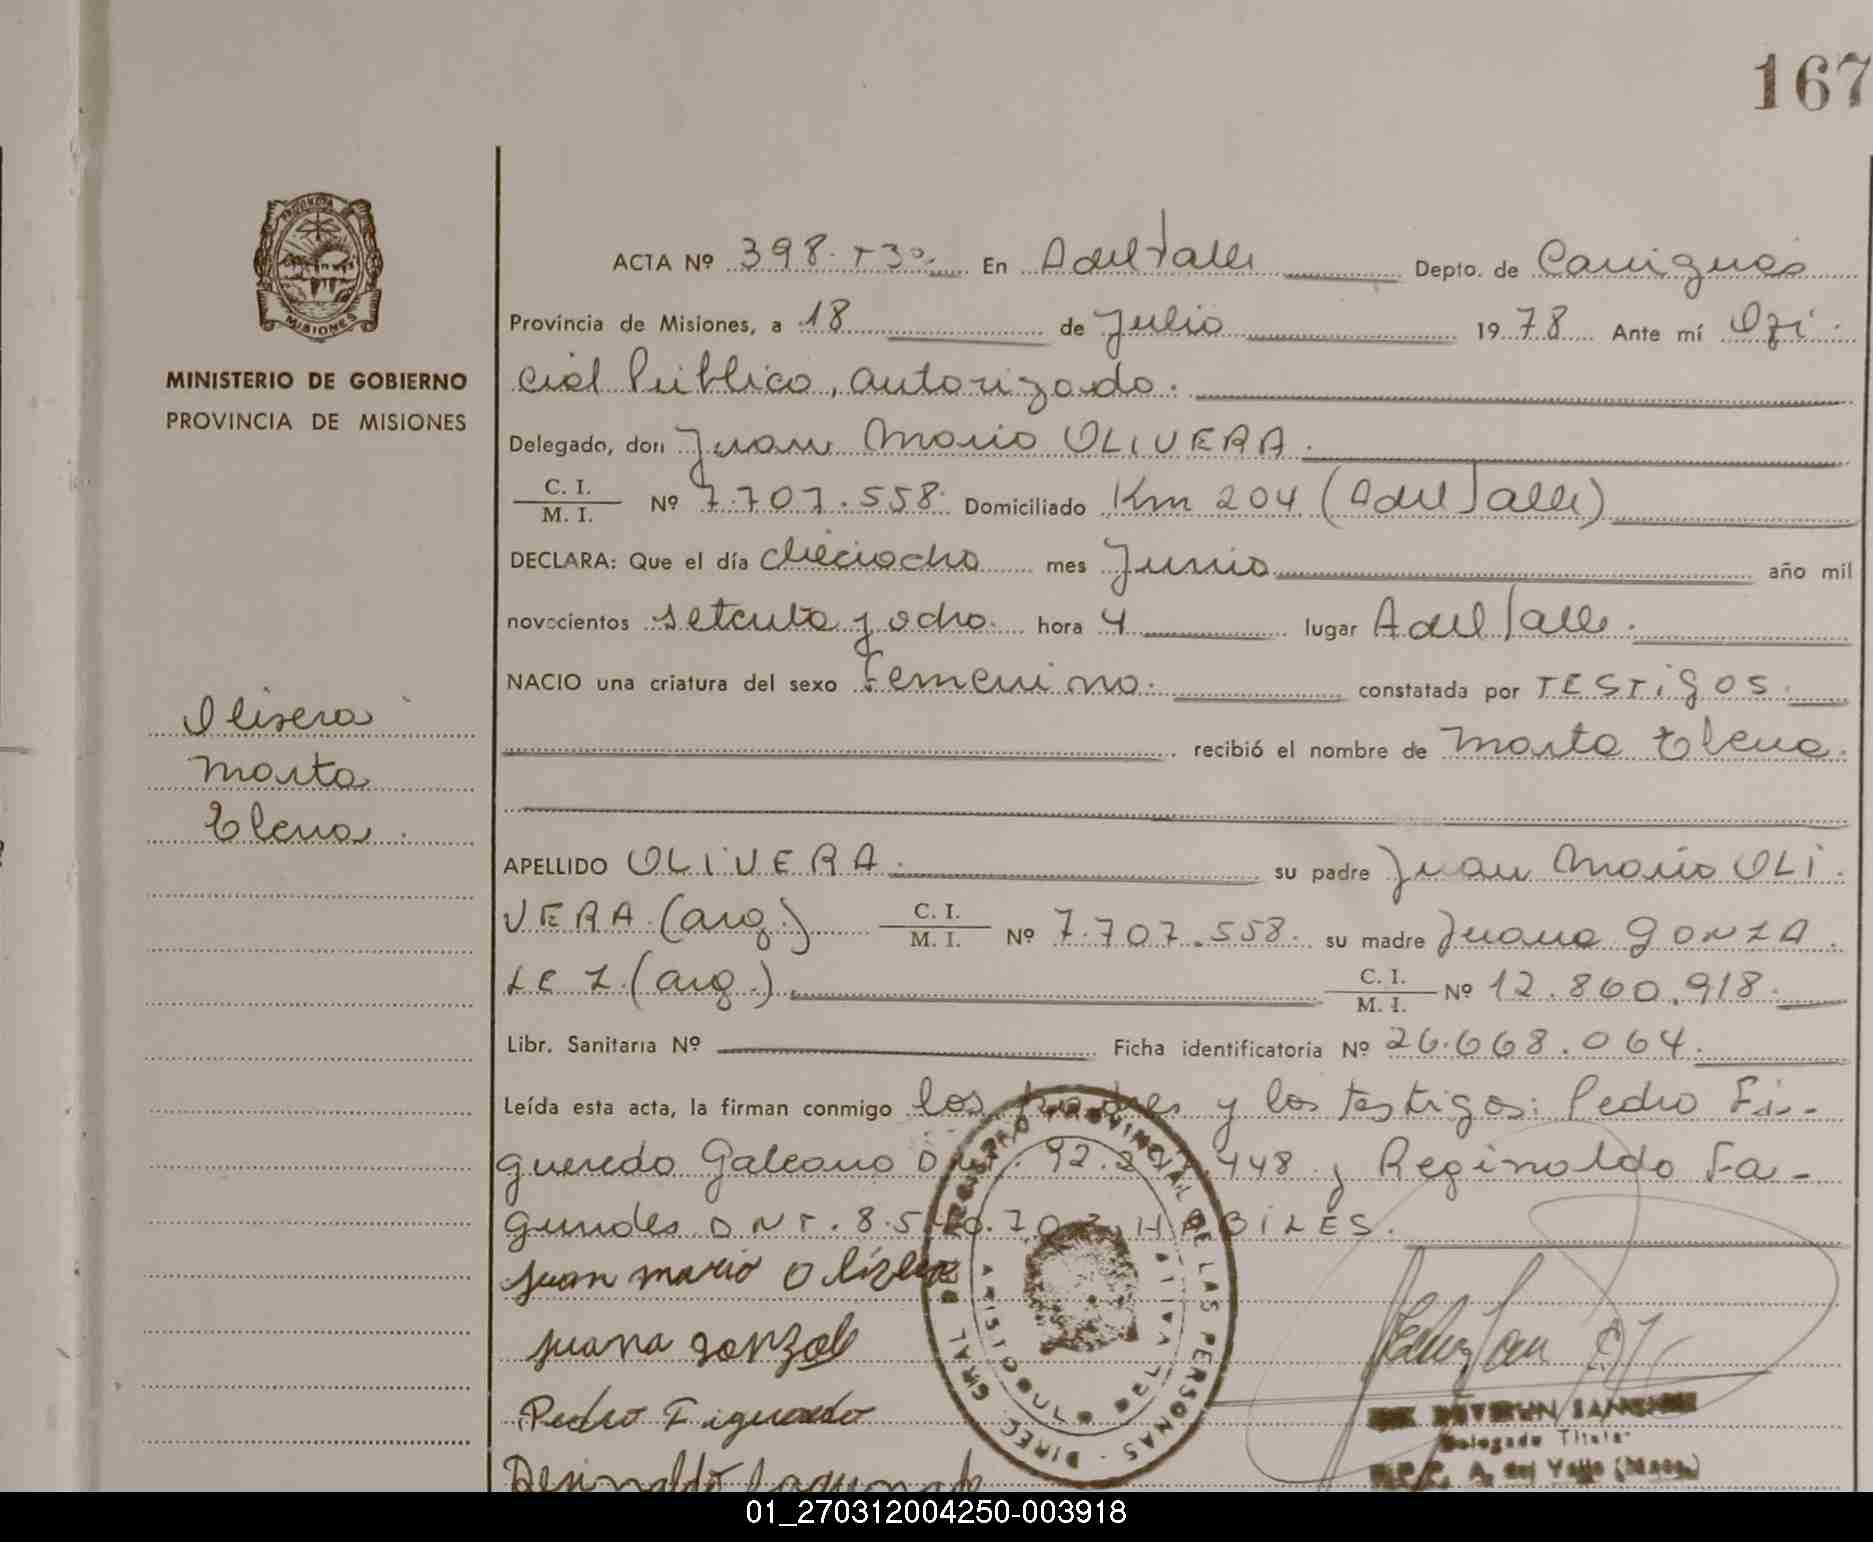 167
ACTA Nº 398. T3º. En A del Valle Depto. de Cainguás
Provincia de Misiones, a 18 de Julio 1978 Ante mí Ofi
MINISTERIO DE GOBIERNO
PROVINCIA DE MISIONES
cial Público, autorizado.
Delegado, don Juan Mario OLIVERA.
C. I.
M. I. Nº 7.707.558. Domiciliado Km 204 (A del Valle)
DECLARA: Que el día dieciocho mes Junio año mil
novecientos setenta y ocho. hora 4 lugar A del Valle.
NACIO una criatura del sexo femenino. constatada por TESTigos.
recibió el nombre de Marta Elena.
Olivera
Marta
Elena.
APELLIDO OLIVERA. su padre Juan Mario OLI
VERA (arg.) C. I.
M. I. Nº 7.707.558. su madre Juana GONZA
LEZ (arg.). C. I.
M. I. Nº 12.860.918.
Libr. Sanitaria Nº Ficha identificatoria Nº 26.668.064.
Leída esta acta, la firman conmigo los padres y los testigos: Pedro Fi-
gueredo Galeano 448 y Reginaldo Fa-
gundes DNI. HABILES.
Juan mario Olivera
juana gonzalez
Pedro Figueredo
DIREC. GRAL REGISTRO PROVINCIAL DE LAS PERSONAS
Delegado Titular
A. del Valle (Mnes.)
01_270312004250-003918